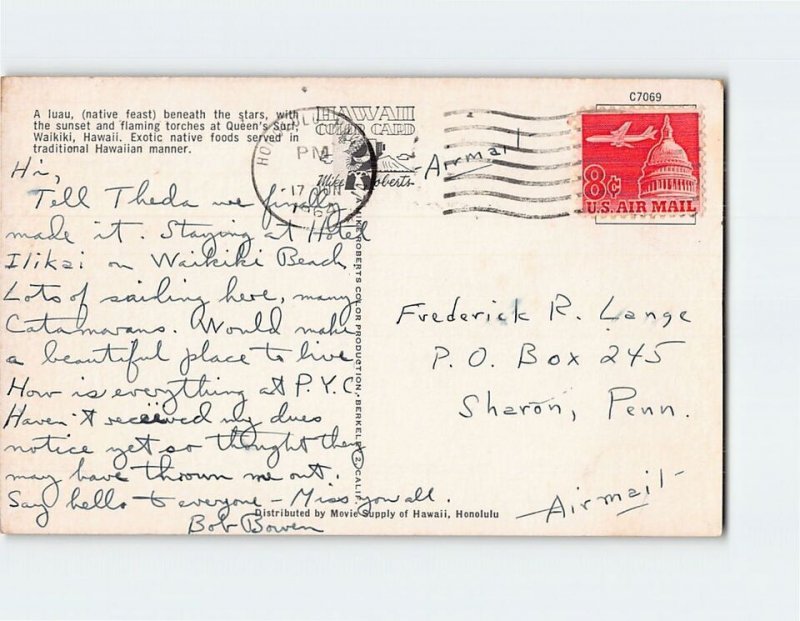 C7069
A luau, (native feast) beneath the stars, with
the sunset and flaming torches at Queen's Surf,
Waikiki, Hawaii. Exotic native foods served in
traditional Hawaiian manner.
HAWAII
COLOR CARD
Mike Roberts
PM
17 JUN
Airmail
8¢
U.S. AIR MAIL
Hi,
Tell Theda we finally
made it. Staying at Hotel
Ilikai on Waikiki Beach.
Lots of sailing here, many
Catamarans. Would make
a beautiful place to live
How is everything at P.Y.C.
Haven't received my dues
notice yet so thought they
may have thrown me out.
Say hello to everyone - Miss you all.
Bob Bowen
MIKE ROBERTS COLOR PRODUCTION, BERKELEY 2, CALIF.
Frederick R. Lange
P.O. Box 245
Sharon, Penn.
Airmail
Distributed by Movie Supply of Hawaii, Honolulu